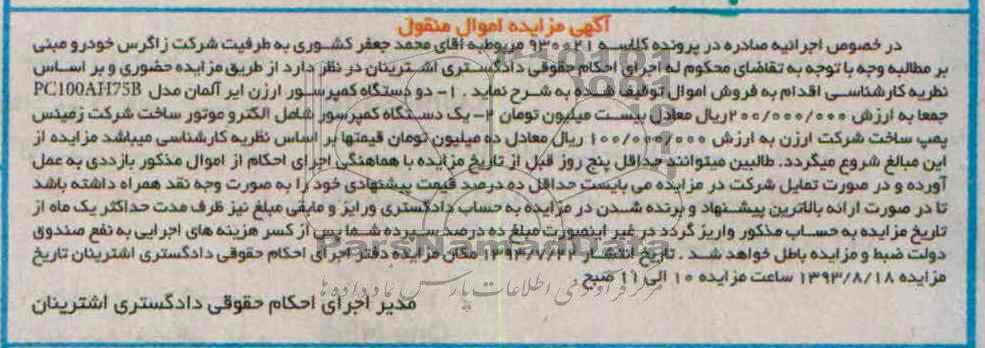 آگهی مزایده اموال منقول
در خصوص اجرائیه صادره در پرونده کلاسه ۹۳۰۰۲۱ مربوطبه آقای محمد جعفر کشوری به طرفیت شرکت زاگرس خودرو مبنی
بر مطالبه وجه با توجه به تقاضای محکوم له اجرای احکام حقوقی دادگستری اشترینان در نظر دارد از طریق مزایده حضوری و بر اساس
نظریه کارشناسی اقدام به فروش اموال توقیف شده به شرح نماید . ۱- دو دستگاه کمپرسور ارزن ایر آلمان مدل PC100AH75B
جمعا به ارزش ۲۰۰/۰۰۰/۰۰۰ریال معادل بیست میلیون تومان ۲- یک دستگاه کمپرسور شامل الکترو موتور ساخت شرکت زمینس
پمپ ساخت شرکت ارزن به ارزش ۱۰۰/۰۰۰/۰۰۰ ریال معادل ده میلیون تومان قیمتها بر اساس نظریه کارشناسی میباشد مزایده از
این مبالغ شروع میگردد. طالبین میتوانند حداقل پنج روز قبل از تاریخ مزایده با هماهنگی اجرای احکام از اموال مذکور بازدیدی به عمل
آورده و در صورت تمایل شرکت در مزایده می بایست حداقل ده درصد قیمت پیشنهادی خود را به صورت وجه نقد همراه داشته باشد
تا در صورت ارائه بالاترین پیشنهاد و برنده شدن در مزایده به حساب دادگستری ورایز و مابقی مبلغ نیز ظرف مدت حداکثر یک ماه از
تاریخ مزایده به حساب مذکور واریز گردد در غیر اینصورت مبلغ ده درصد سپرده شما پس از کسر هزینه های اجرایی به نفع صندوق
دولت ضبط و مزایده باطل خواهد شد . تاریخ انتشار ۱۳۹۳/۷/۲۲ مکان مزایده دفتر اجرای احکام حقوقی دادگستری اشترینان تاریخ
مزایده ۱۳۹۳/۸/۱۸ ساعت مزایده ۱۰ الی ۱۱ صبح
مدیر اجرای احکام حقوقی دادگستری اشترینان
ParsNamadData
مرکز فرآوری اطلاعات پارس نماد داده ها